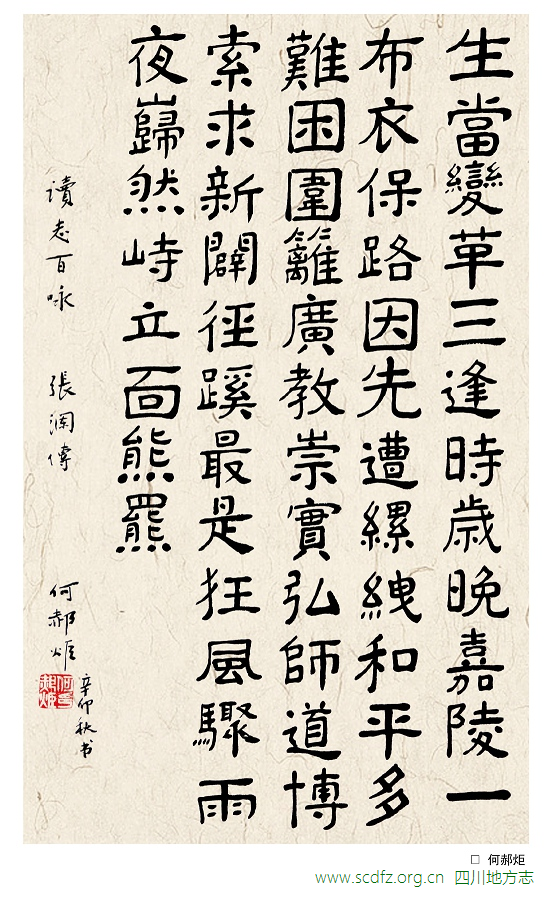 生當變革三逢時歲晚嘉陵一
布衣保路因先遭縲絏和平多
難困圍籬廣教崇實弘師道博
索求新闢徑蹊最是狂風驟雨
夜巋然峙立面熊羆
讀志百咏 張瀾傳 何郝炬
辛卯秋书
□ 何郝炬
www.scdfz.org.cn 四川地方志